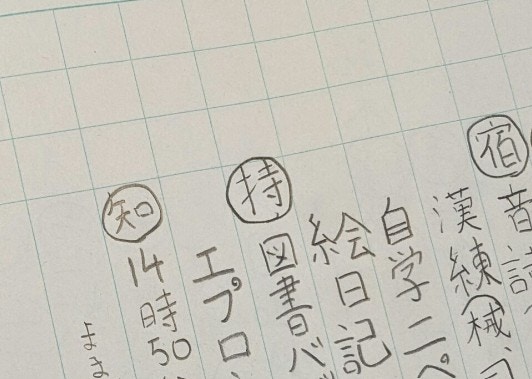 宿 音読
漢練 械
自学二ペ
絵日記
持 図書バ
エプロ
知 14時50
よ